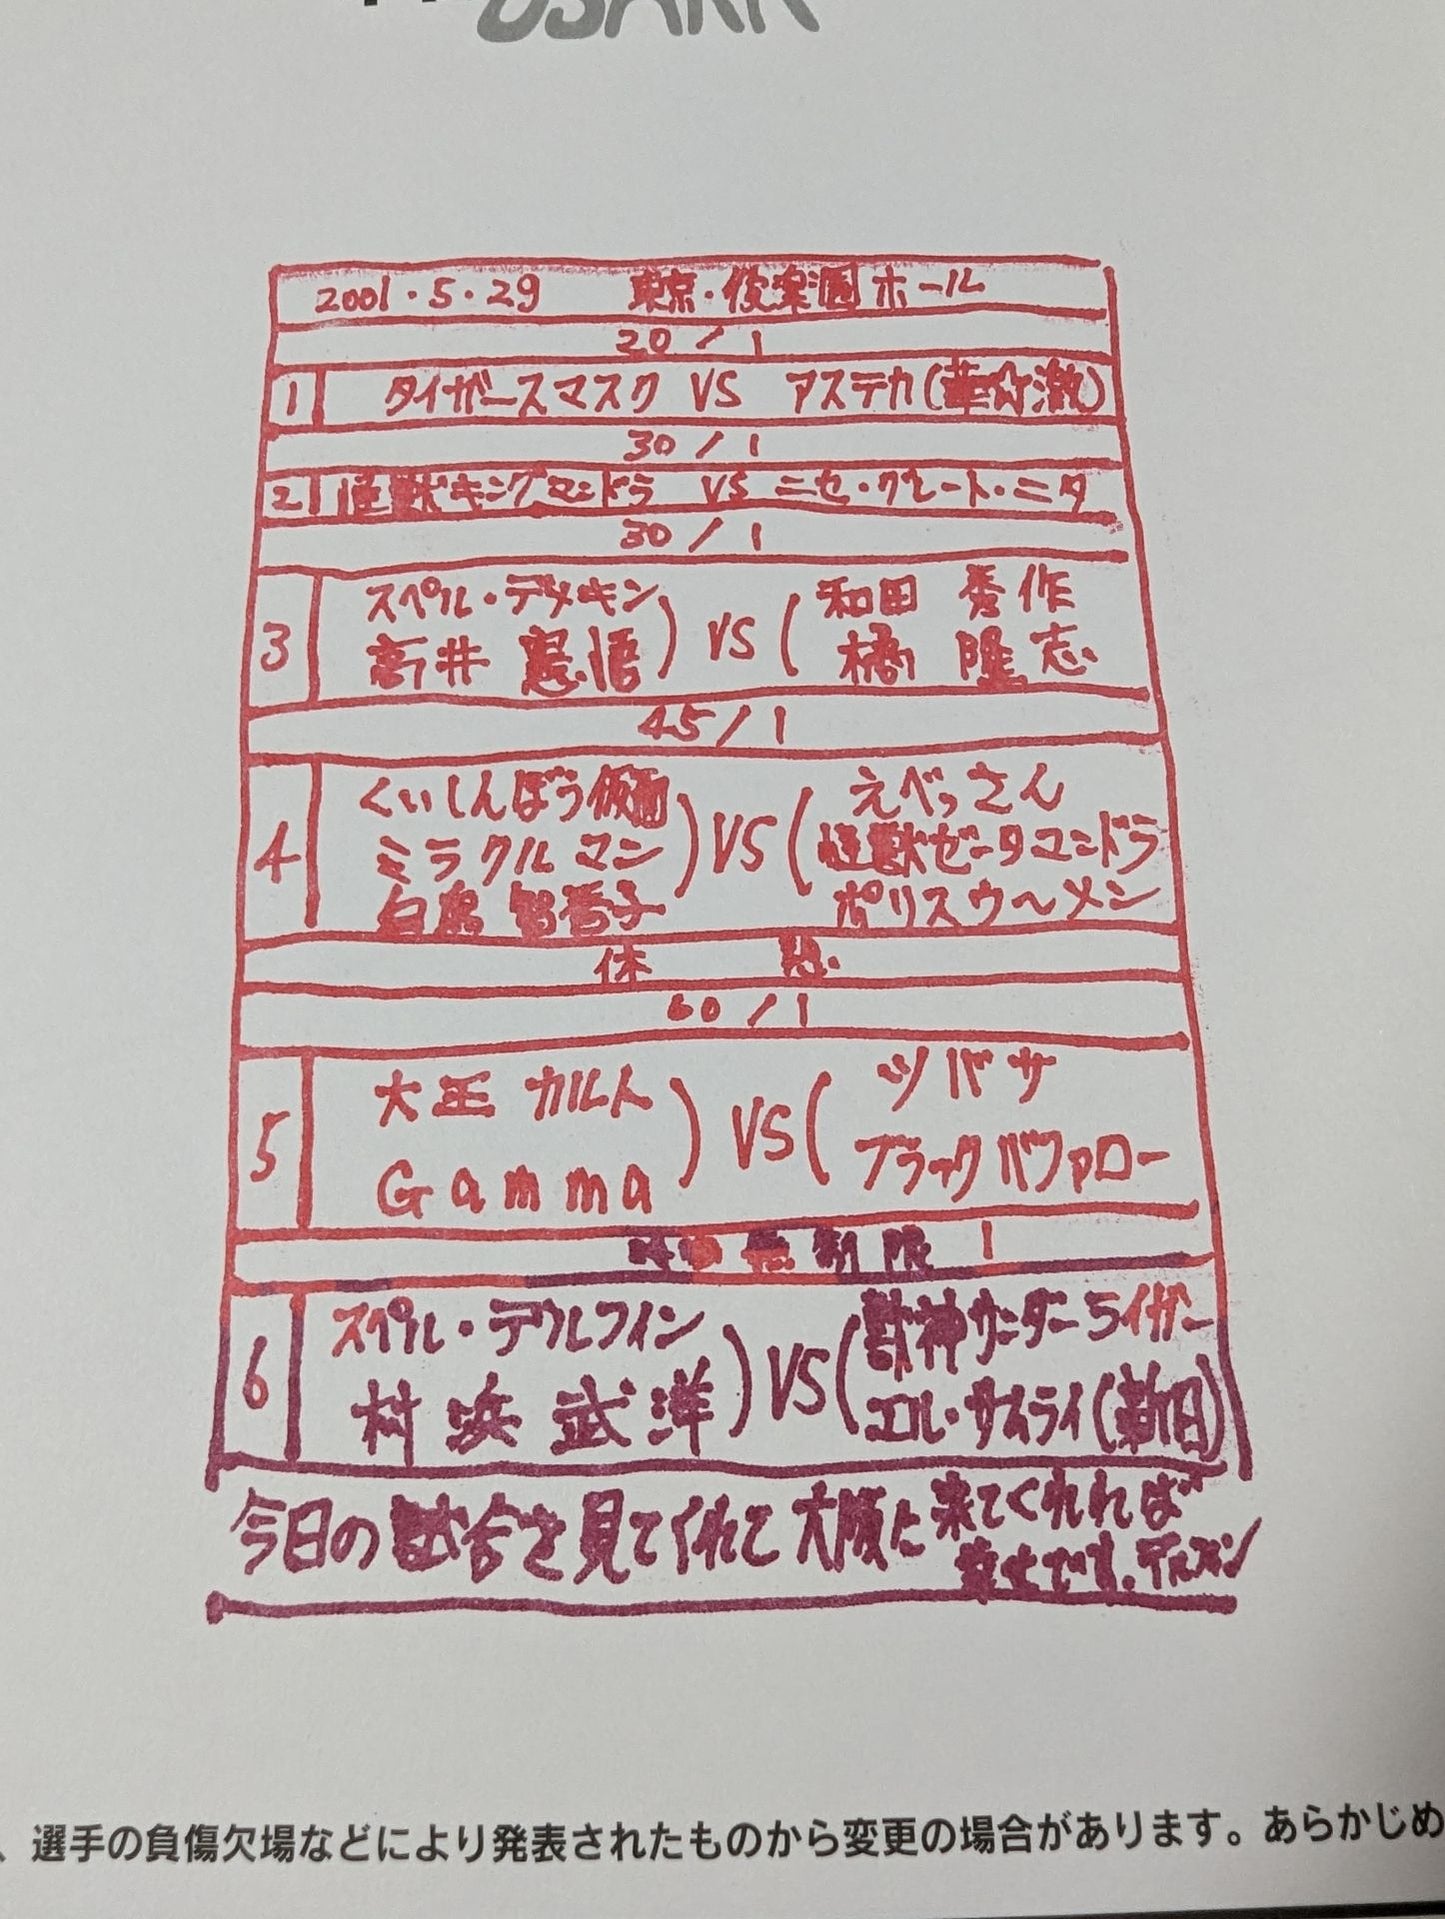 OSAKA
2001・5・29 東京・後楽園ホール
20/1
1 タイガースマスク VS アステカ(華☆激)
30/1
2 怪獣キングマンドラ VS ニセ・グレート・ニタ
30/1
3 スペル・デメキン 高井 憲悟) VS (和田 秀作 橘 隆志
45/1
4 くいしんぼう仮面 ミラクルマン 白鳥 智香子) VS (えべっさん 怪獣ゼータマンドラ ポリスウ〜メン
休 憩
60/1
5 大王 カルト Gamma) VS (ツバサ ブラックバファロー
時間無制限 1
6 スペル・デルフィン 村浜 武洋) VS (獣神サンダーライガー エル・サムライ(新日)
今日の試合を見てくれて大阪に来てくれれば
幸せです。デルフィン
、選手の負傷欠場などにより発表されたものから変更の場合があります。あらかじめ